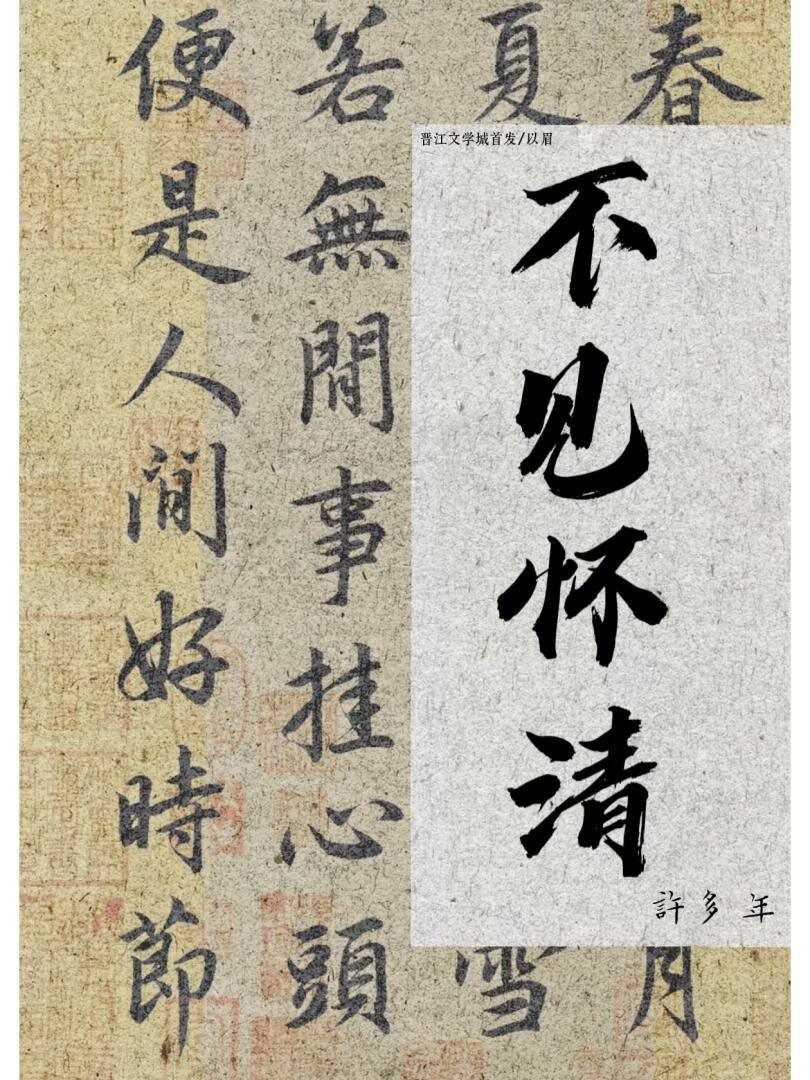 春
月
夏
雪
若無閒事挂心頭
便是人间好時節
晋江文学城首发/以眉
不见怀清
許多年